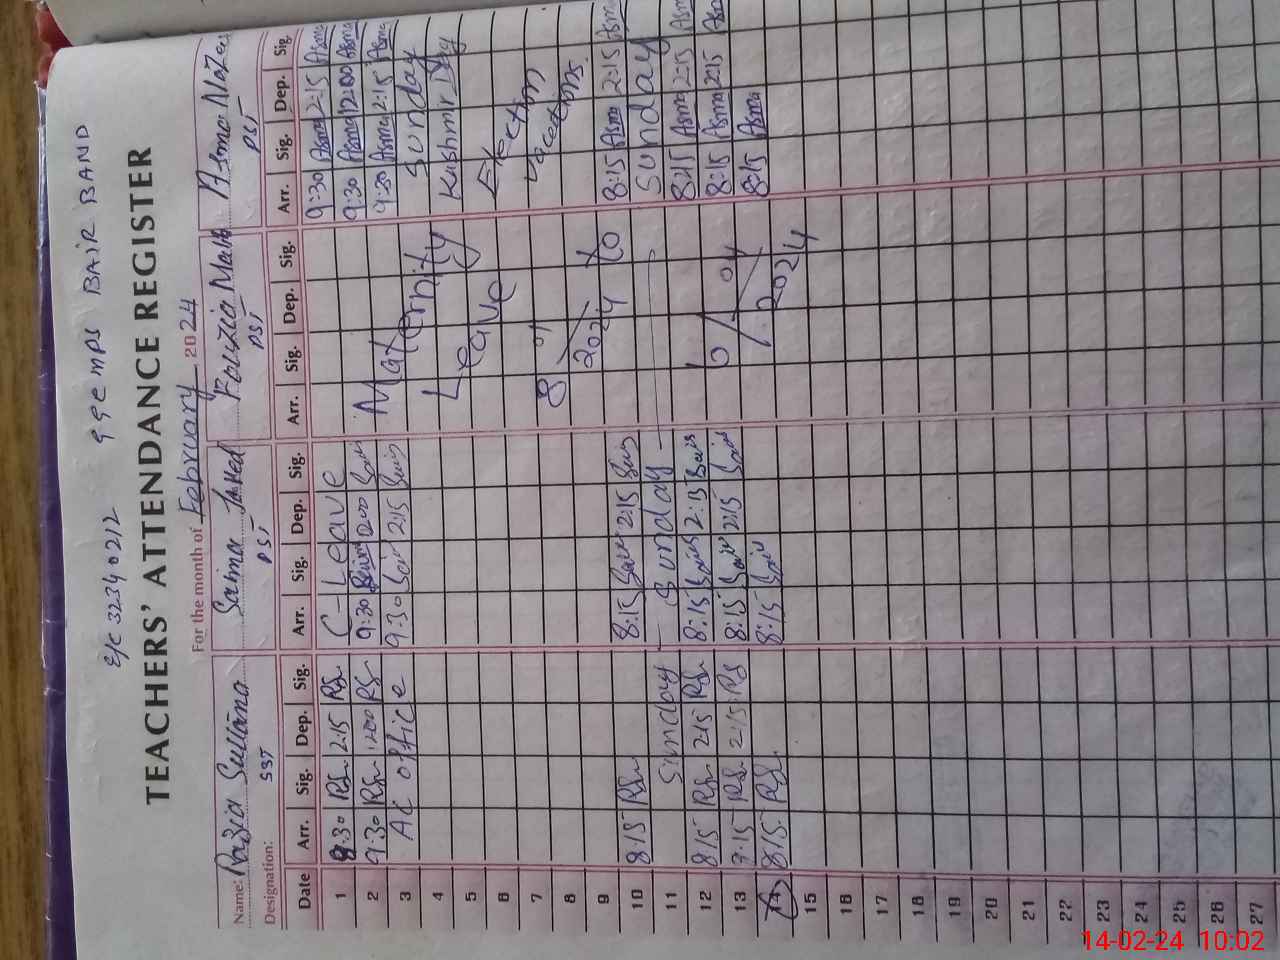 E/C 32340212 GGCMPS BAIR BAND
TEACHERS' ATTENDANCE REGISTER
For the month of February 2024
Name: Razia Sultana Saima Javed Fouzia Malik Asma Nazees
Designation: SST PST PST PST
Date Arr. Sig. Dep. Sig. Arr. Sig. Dep. Sig. Arr. Sig. Dep. Sig. Arr. Sig. Dep. Sig.
1 9:30 2:15 C-Leave 9:30 Asma 2:15 Asma
2 9:30 12:00 9:30 12:00 9:30 Asma 12:00 Asma
3 AC office 9:30 2:15 Maternity 9:30 Asma 2:15 Asma
4 Leave Sunday
5 Kashmir Day
6 Election
7 8/01/2024 to vacations
8
9
10 8:15 8:15 2:15 8:15 Asma 2:15 Asma
11 Sunday Sunday Sunday
12 8:15 2:15 8:15 2:15 6/04/2024 8:15 Asma 2:15 Asma
13 8:15 2:15 8:15 2:15 8:15 Asma 2:15 Asma
14 8:15 8:15 8:15 Asma
15
16
17
18
19
20
21
22
23
24
25
26
27
14-02-24 10:02